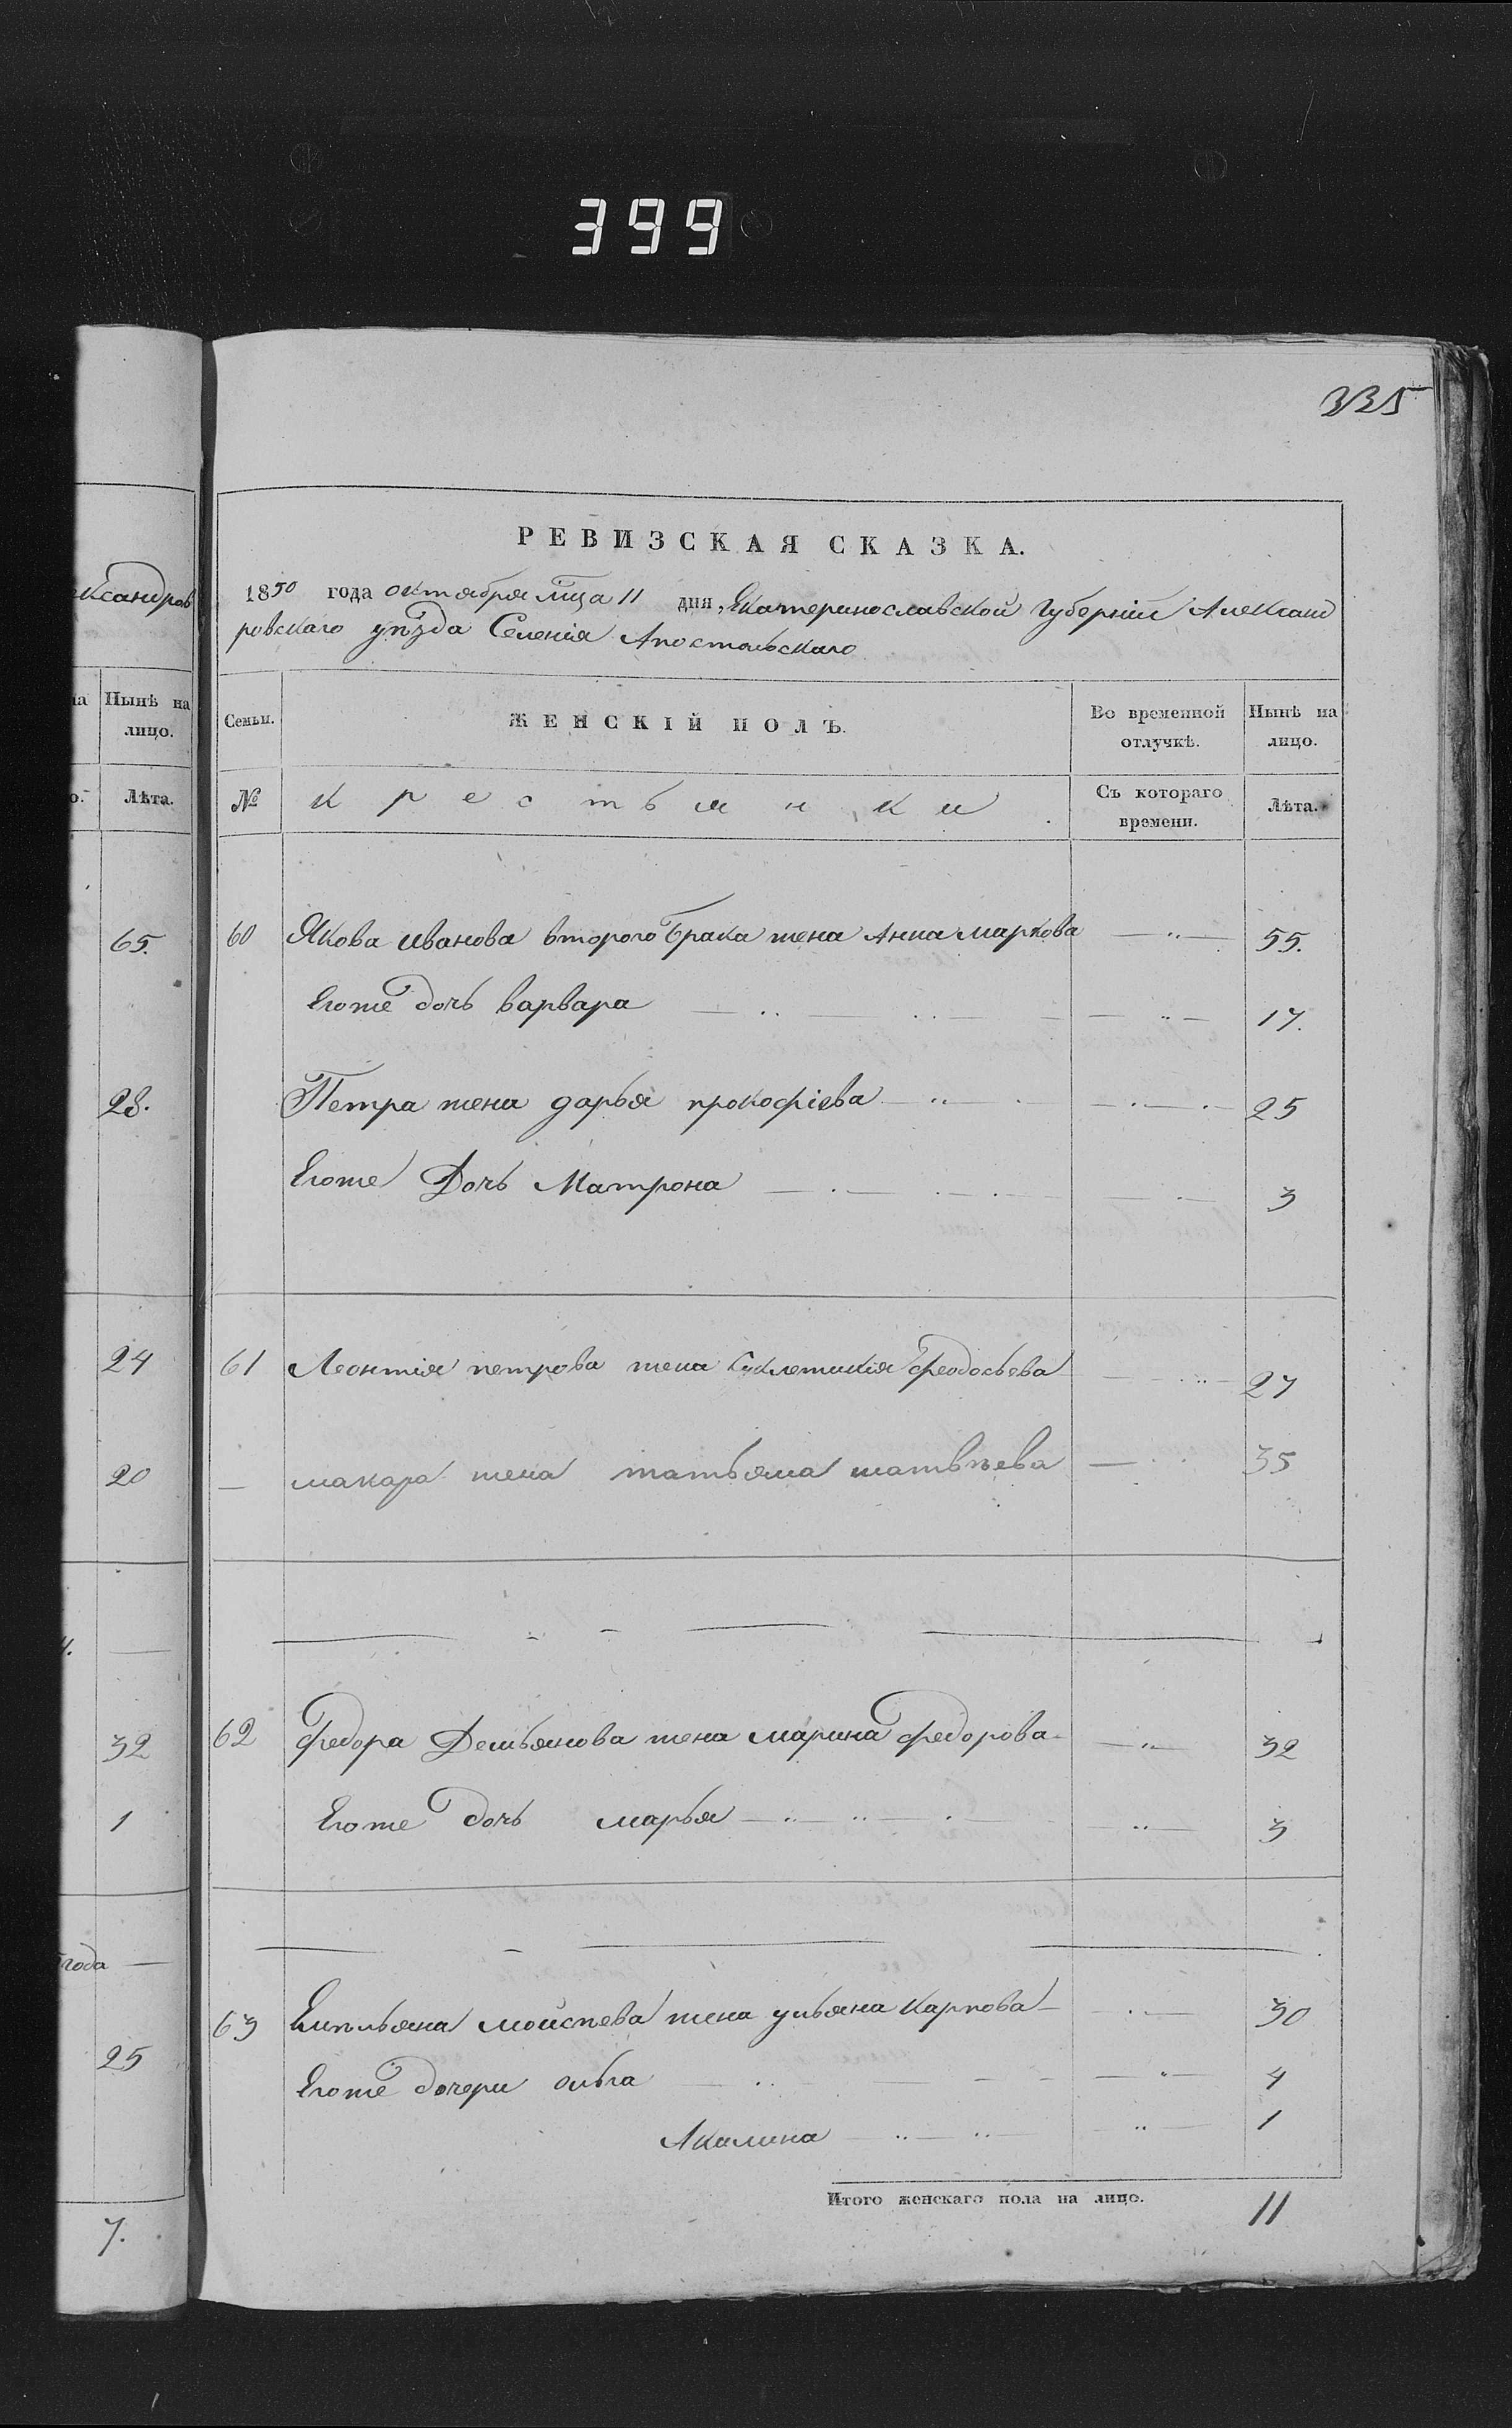 399
335
РЕВИЗСКАЯ СКАЗКА.
1850 года октября мца 11 дня, Екатеринославской Губерніи Александ
ровскаго уѣзда Селенія Апостольскаго
ксандров
на
Нынѣ на лицо.
о.
Лѣта.
Семьи.
ЖЕНСКІЙ ПОЛЪ.
Во временной отлучкѣ.
Нынѣ на лицо.
№
Крестьянки
Съ котораго времени.
Лѣта.
65.
60 Якова иванова второго брака жена Анна маркова 55.
Егоже дочь варвара 17.
28.
Петра жена дарья прокофіева 25
Егоже Дочь Матрона 3
24
61 Леонтія петрова жена Феодосьева 27
20
макара жена татьяна матвѣева 35
32
62 Федора Демьянова жена марина федорова 32
1
Егоже дочь марья 3
года
63 Емельяна моисѣева жена ульяна карпова 30
25
Егоже дочери ольга 4
Акилина 1
Итого женскаго пола на лицо. 11
7.